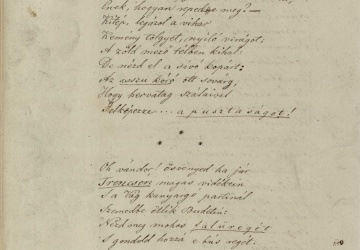 Ének, hogyan repedne meg? —
Kitép, lejárol a vihar
Kemény tölgyet, nyíló virágot;
A zöld mező télben kihal:
De nézd el a sivó kopárt:
Az aszu kóró ott sovárg,
Hogy hervatag szálaival
Jelképezze . . . a pusztaságot!
* * *
Oh vándor! ösvényed ha jár
Trencsén magas vidékein
S a Vág kanyargó partinál
Szemedbe ötlik Budetin:
Nézd meg mohos falüregét
S gondold hozzá e bús regét.